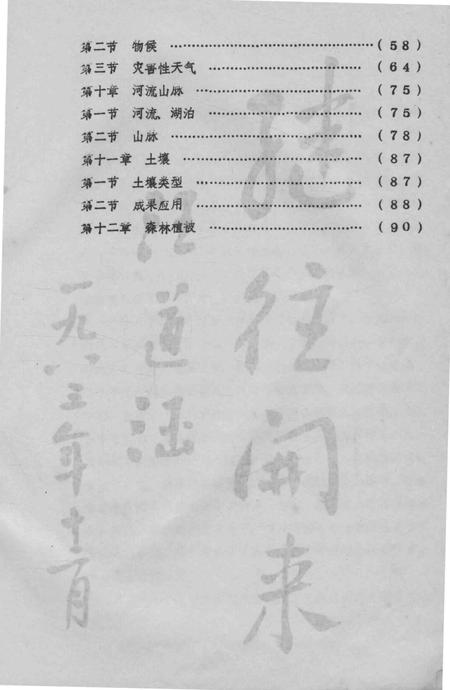 第二节 物侯 ……………………………… (58)
第三节 灾害性天气 ………………………… (64)
第十章 河流山脉 ………………………… (75)
第一节 河流、湖泊 ………………………… (75)
第二节 山脉 ……………………………… (78)
第十一章 土壤 …………………………… (87)
第一节 土壤类型 ………………………… (87)
第二节 成果应用 ………………………… (88)
第十二章 森林植被 ………………………… (90)
继往开来
汪道涵
一九八三年十二月